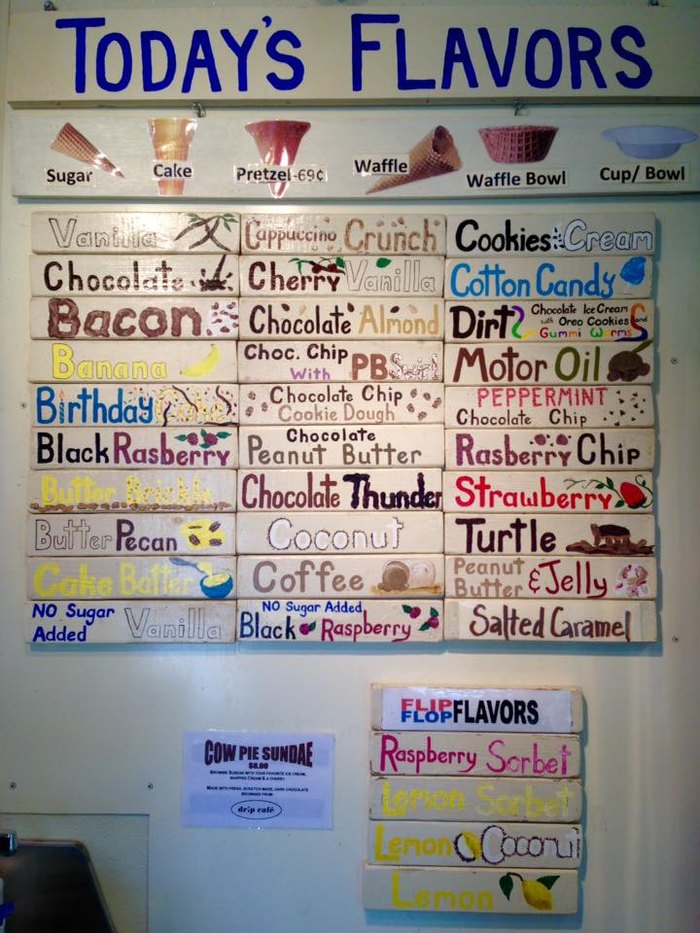 TODAY'S FLAVORS
Sugar
Cake
Pretzel-69¢
Waffle
Waffle Bowl
Cup/ Bowl
Vanilla
Chocolate
Bacon
Banana
Birthday Cake
Black Rasberry
Butter Brickle
Butter Pecan
Cake Batter
NO Sugar
Added Vanilla
Cappuccino Crunch
Cherry Vanilla
Chocolate Almond
Choc. Chip
With PB Swirl
Chocolate Chip
Cookie Dough
Chocolate
Peanut Butter
Chocolate Thunder
Coconut
Coffee
NO Sugar Added
Black Raspberry
Cookies & Cream
Cotton Candy
Dirt Chocolate Ice Cream
with Oreo Cookies and
Gummi Worms
Motor Oil
PEPPERMINT
Chocolate Chip
Rasberry Chip
Strawberry
Turtle
Peanut
Butter & Jelly
Salted Caramel
FLIP
FLOP FLAVORS
Raspberry Sorbet
Lemon Sorbet
Lemon Coconut
Lemon
COW PIE SUNDAE
$6.00
BROWNIE SUNDAE WITH YOUR FAVORITE ICE CREAM,
WHIPPED CREAM & A CHERRY.
MADE WITH FRESH, SCRATCH-MADE, DARK CHOCOLATE
BROWNIES FROM
drip café